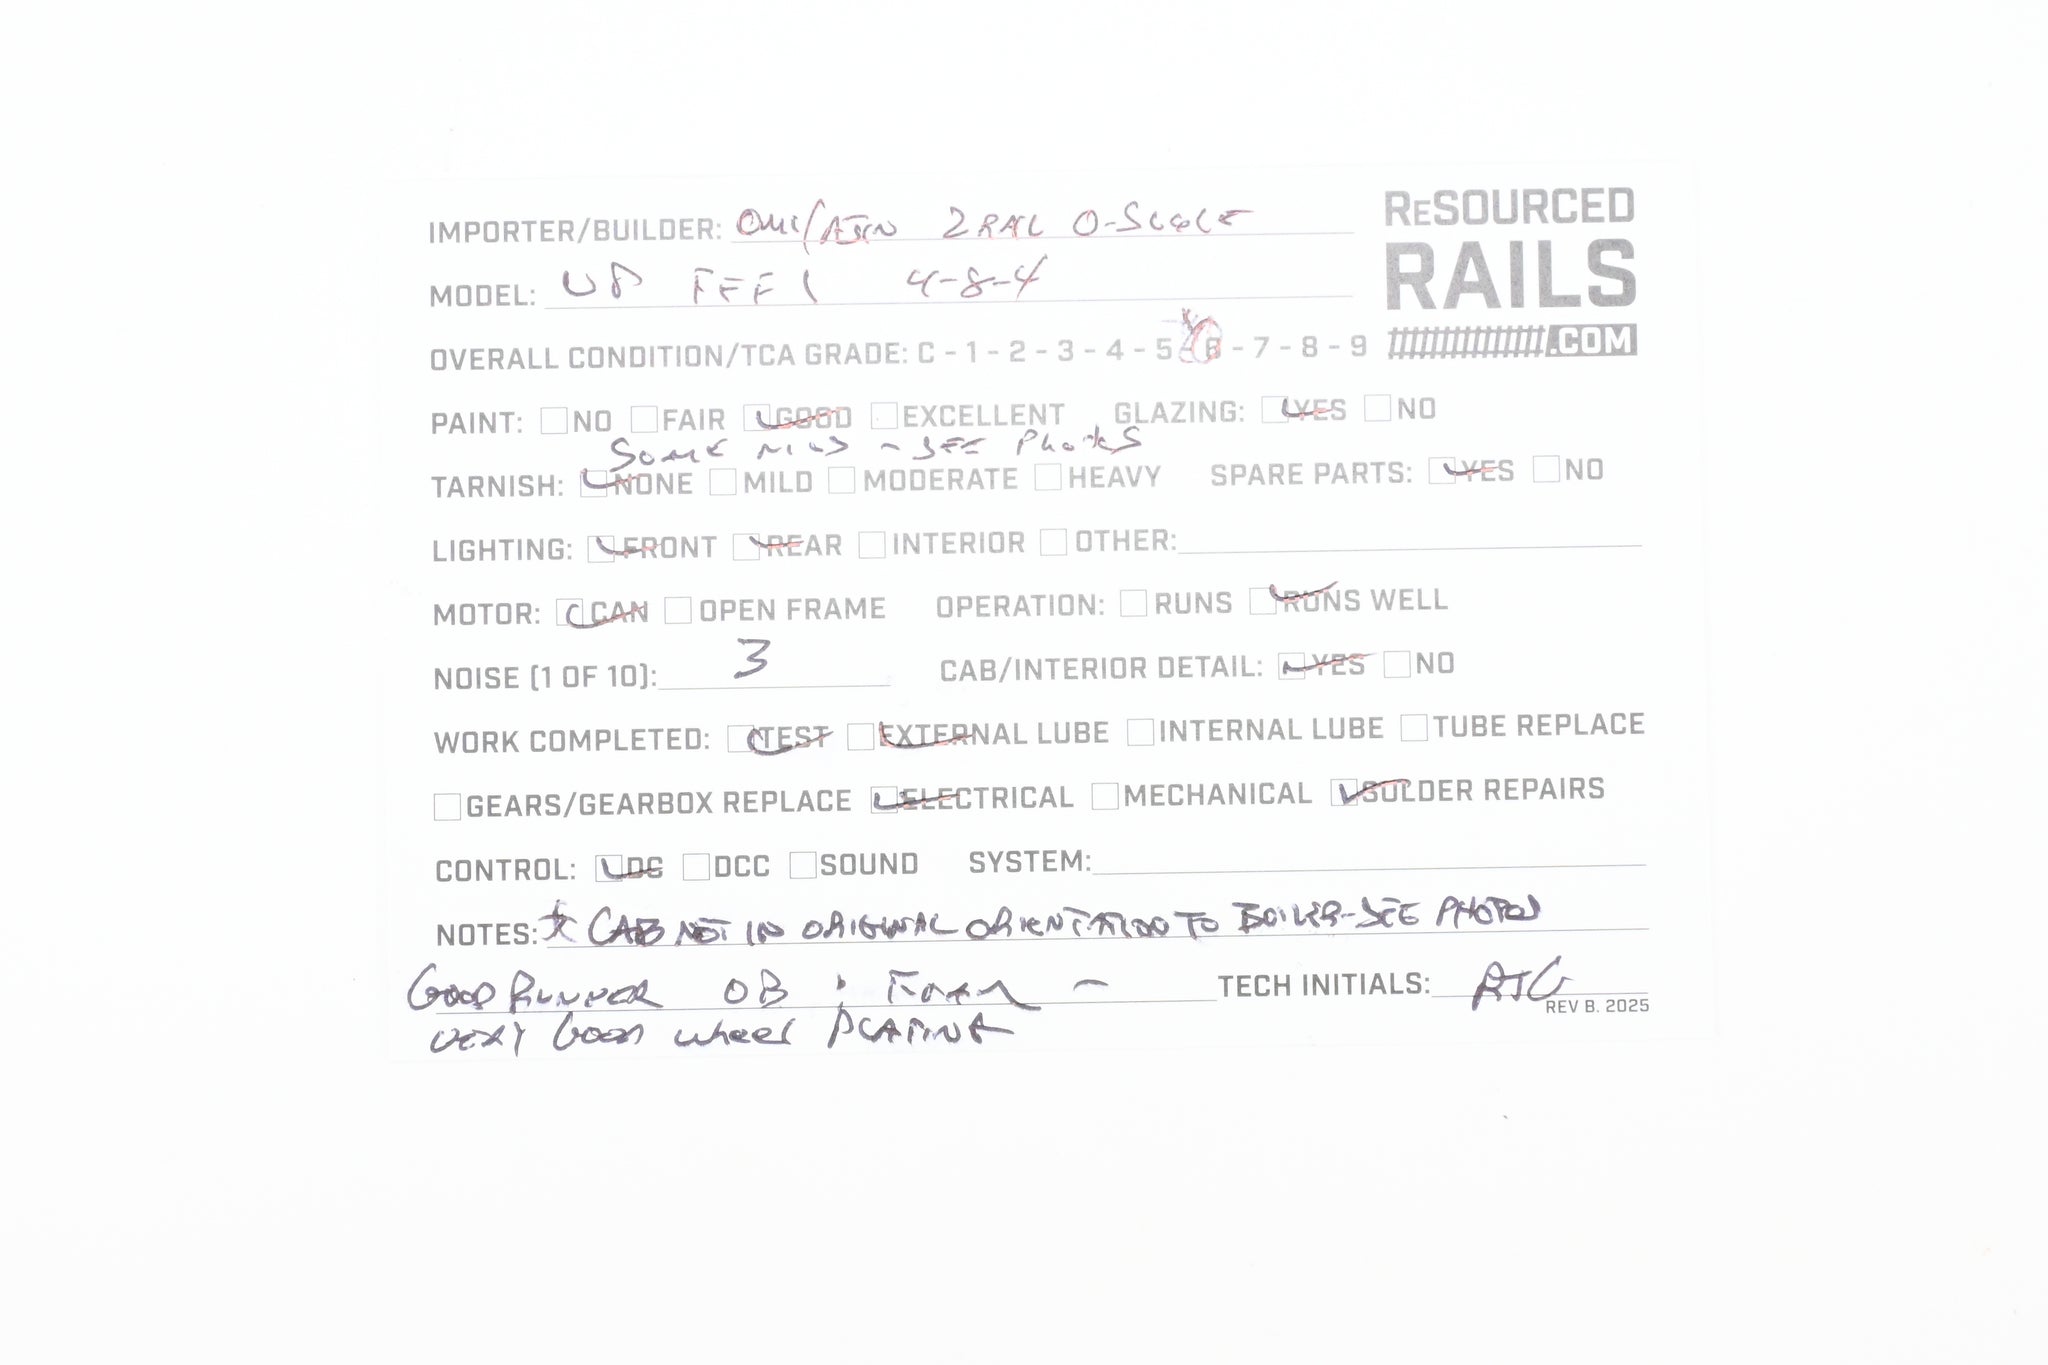 RESOURCED
RAILS
.COM
IMPORTER/BUILDER: OMI/AJIN 2 RAIL O-SCALE
MODEL: UP FEF 1 4-8-4
OVERALL CONDITION/TCA GRADE: C - 1 - 2 - 3 - 4 - 5 - 6 - 7 - 8 - 9
PAINT: NO FAIR GOOD EXCELLENT GLAZING: YES NO
SOME NICKS - SEE PHOTOS
TARNISH: NONE MILD MODERATE HEAVY SPARE PARTS: YES NO
LIGHTING: FRONT REAR INTERIOR OTHER:
MOTOR: CAN OPEN FRAME OPERATION: RUNS RUNS WELL
NOISE (1 OF 10): 3 CAB/INTERIOR DETAIL: YES NO
WORK COMPLETED: TEST EXTERNAL LUBE INTERNAL LUBE TUBE REPLACE
GEARS/GEARBOX REPLACE ELECTRICAL MECHANICAL SOLDER REPAIRS
CONTROL: DC DCC SOUND SYSTEM:
NOTES: * CAB NOT IN ORIGINAL ORIENTATION TO BOILER-SEE PHOTOS
GOOD RUNNER OB ; FOAM - TECH INITIALS:
REV B. 2025
VERY GOOD WHEEL PLATING